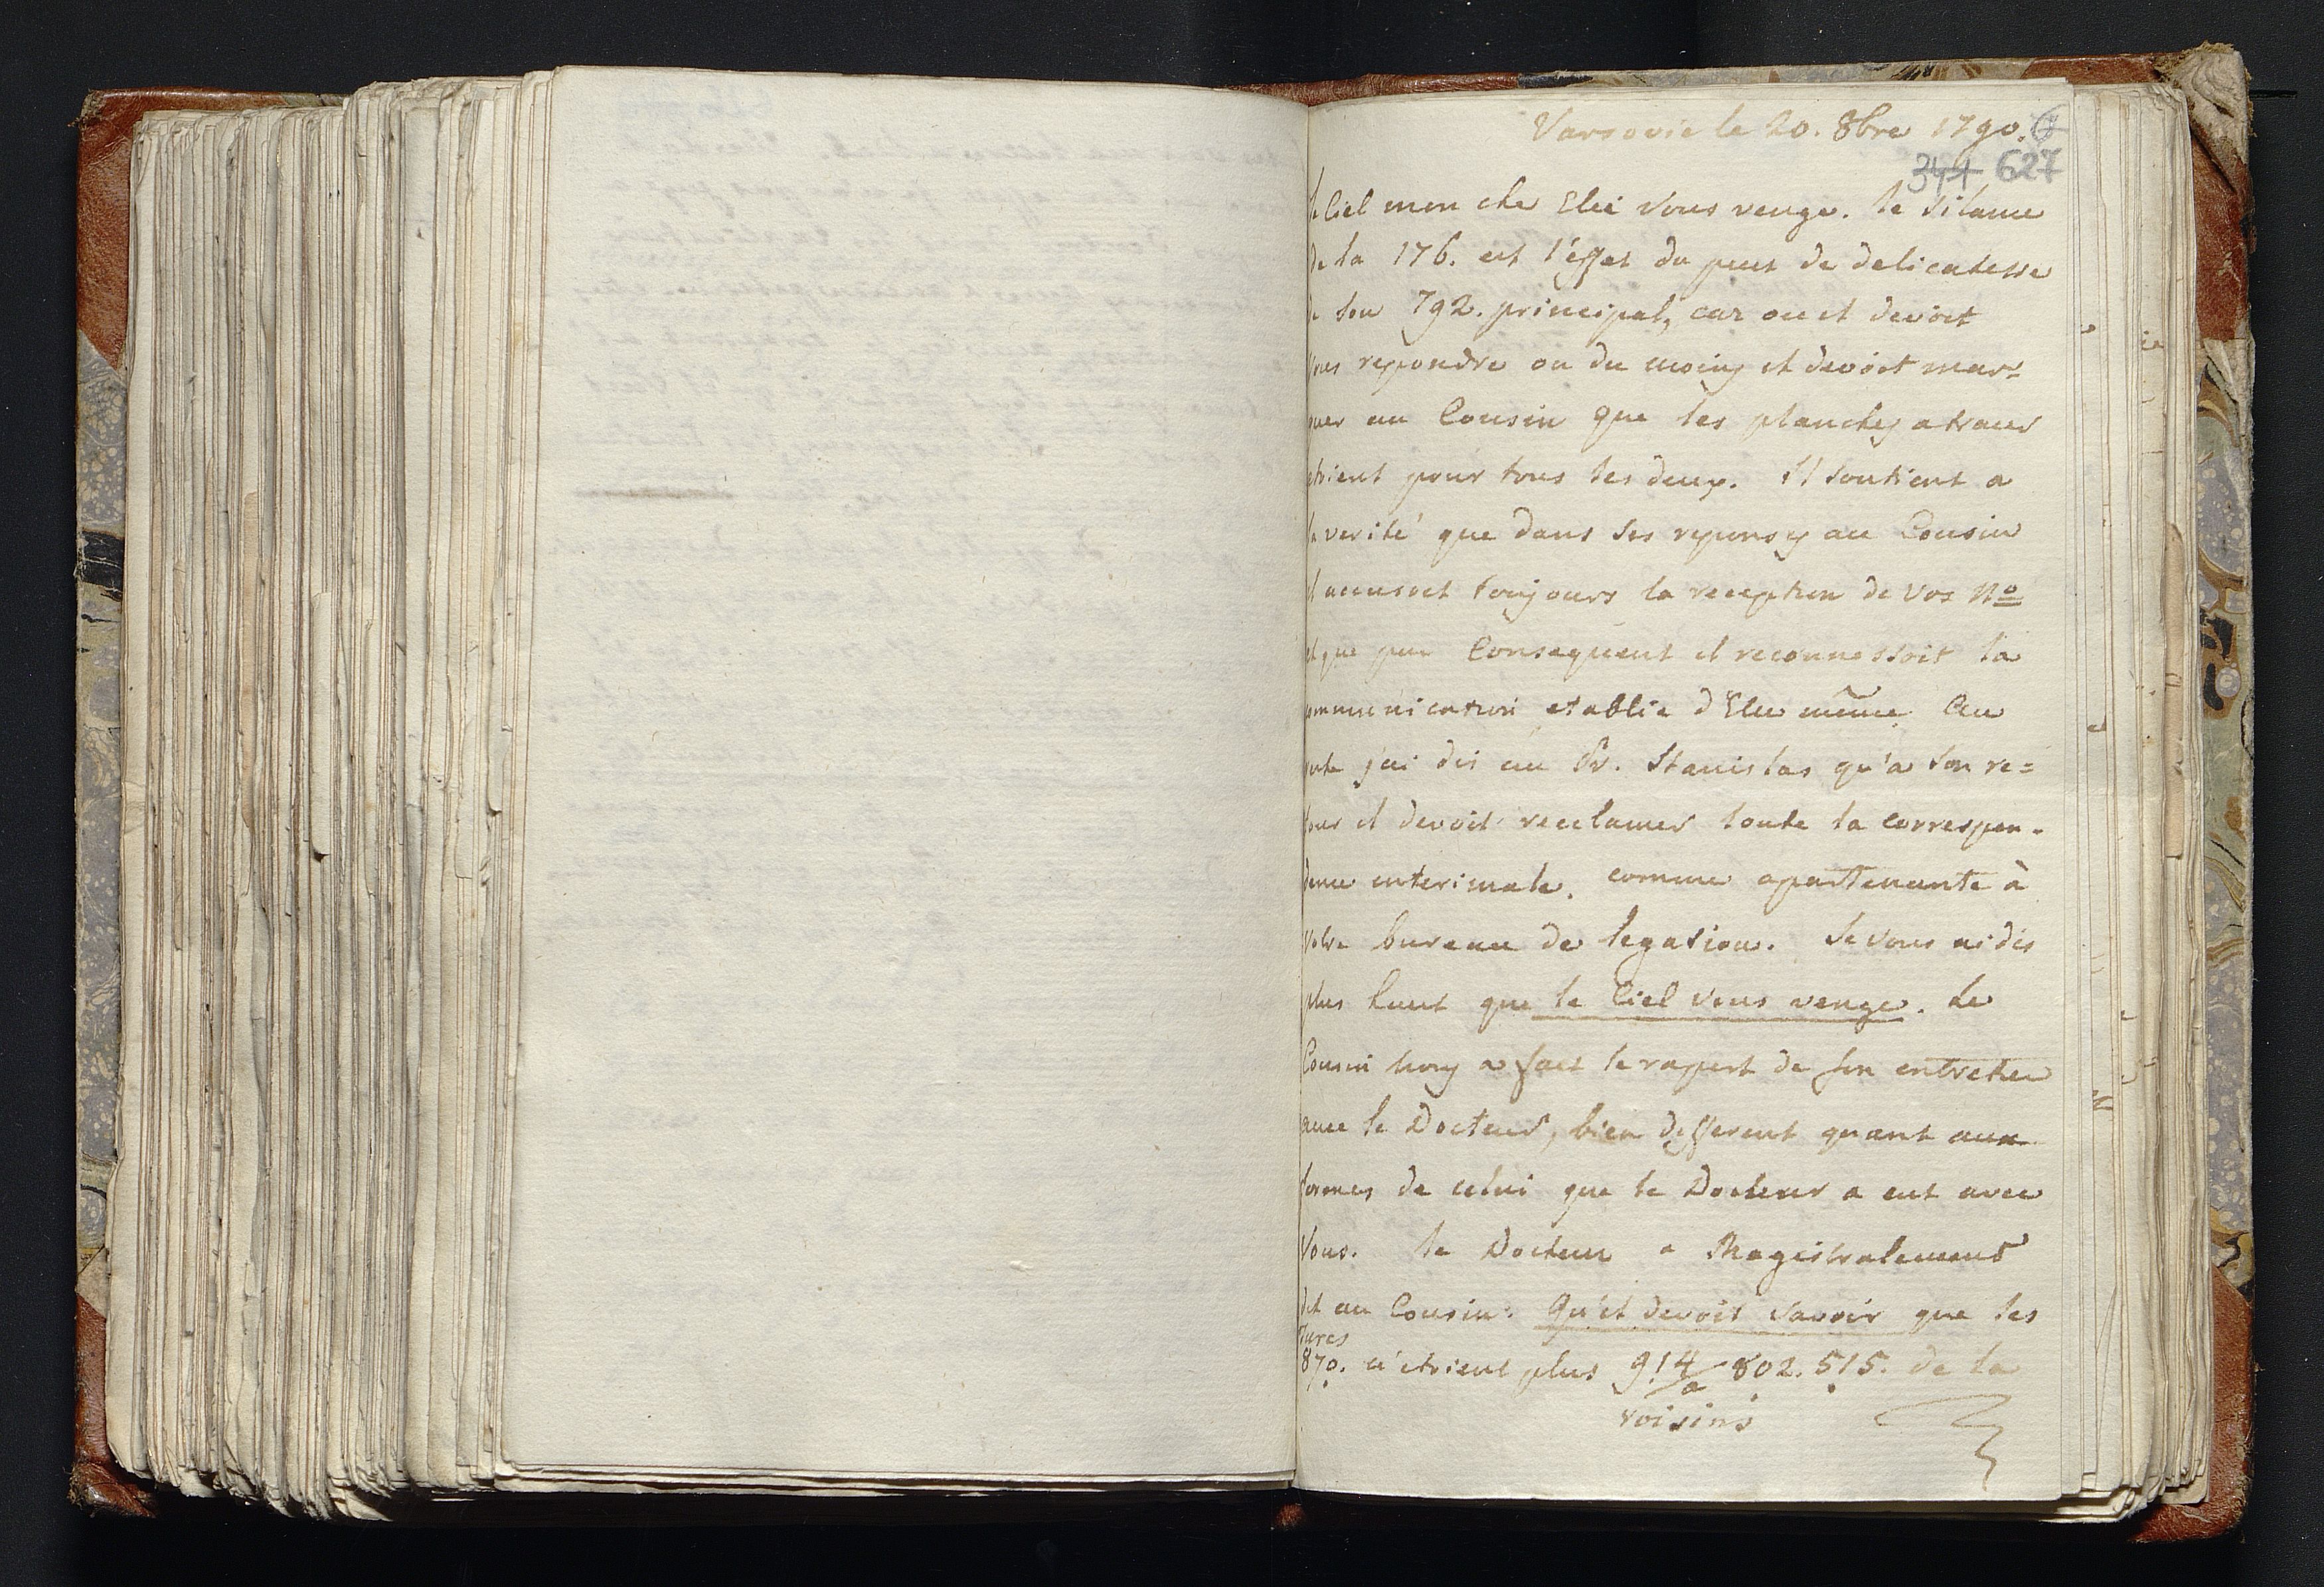 Varsovie le 20. 8bre 1790.
341 627
le Ciel mon che Elie vous venge. le silance
de la 176. est l'éffet du peut de delicatesse
de son 792. principal, car ou il devoit
vous repondre ou du moins il devoit mar=
quer au Cousin que les planches a tracer
etoient pour tous les deux. Il soutient a
la verité que dans ses reponses au Cousin
il accusoit toujours la reception de vos No
et que par Consequent il reconnessoit la
communication etablie d'Elie même. Au
reste j'ai dis au Pr. Stanislas qu'a son re=
tour il devoit reclamer toute la correspon=
dence interimale. comme apartenante à
votre bureau de legation. Je vous ai dis
plus haut que le Ciel vous venge. Le
Cousin nous a fait le raport de son entretien
avec le Docteur, bien different quant aux
formes de celui que le Docteur a eut avec
Vous. le Docteur a Magistralement
dit au Cousin: Qu'il devoit savoir que les
Turcs
870. n'etoient plus 914/a 802. 515. de la
voisins